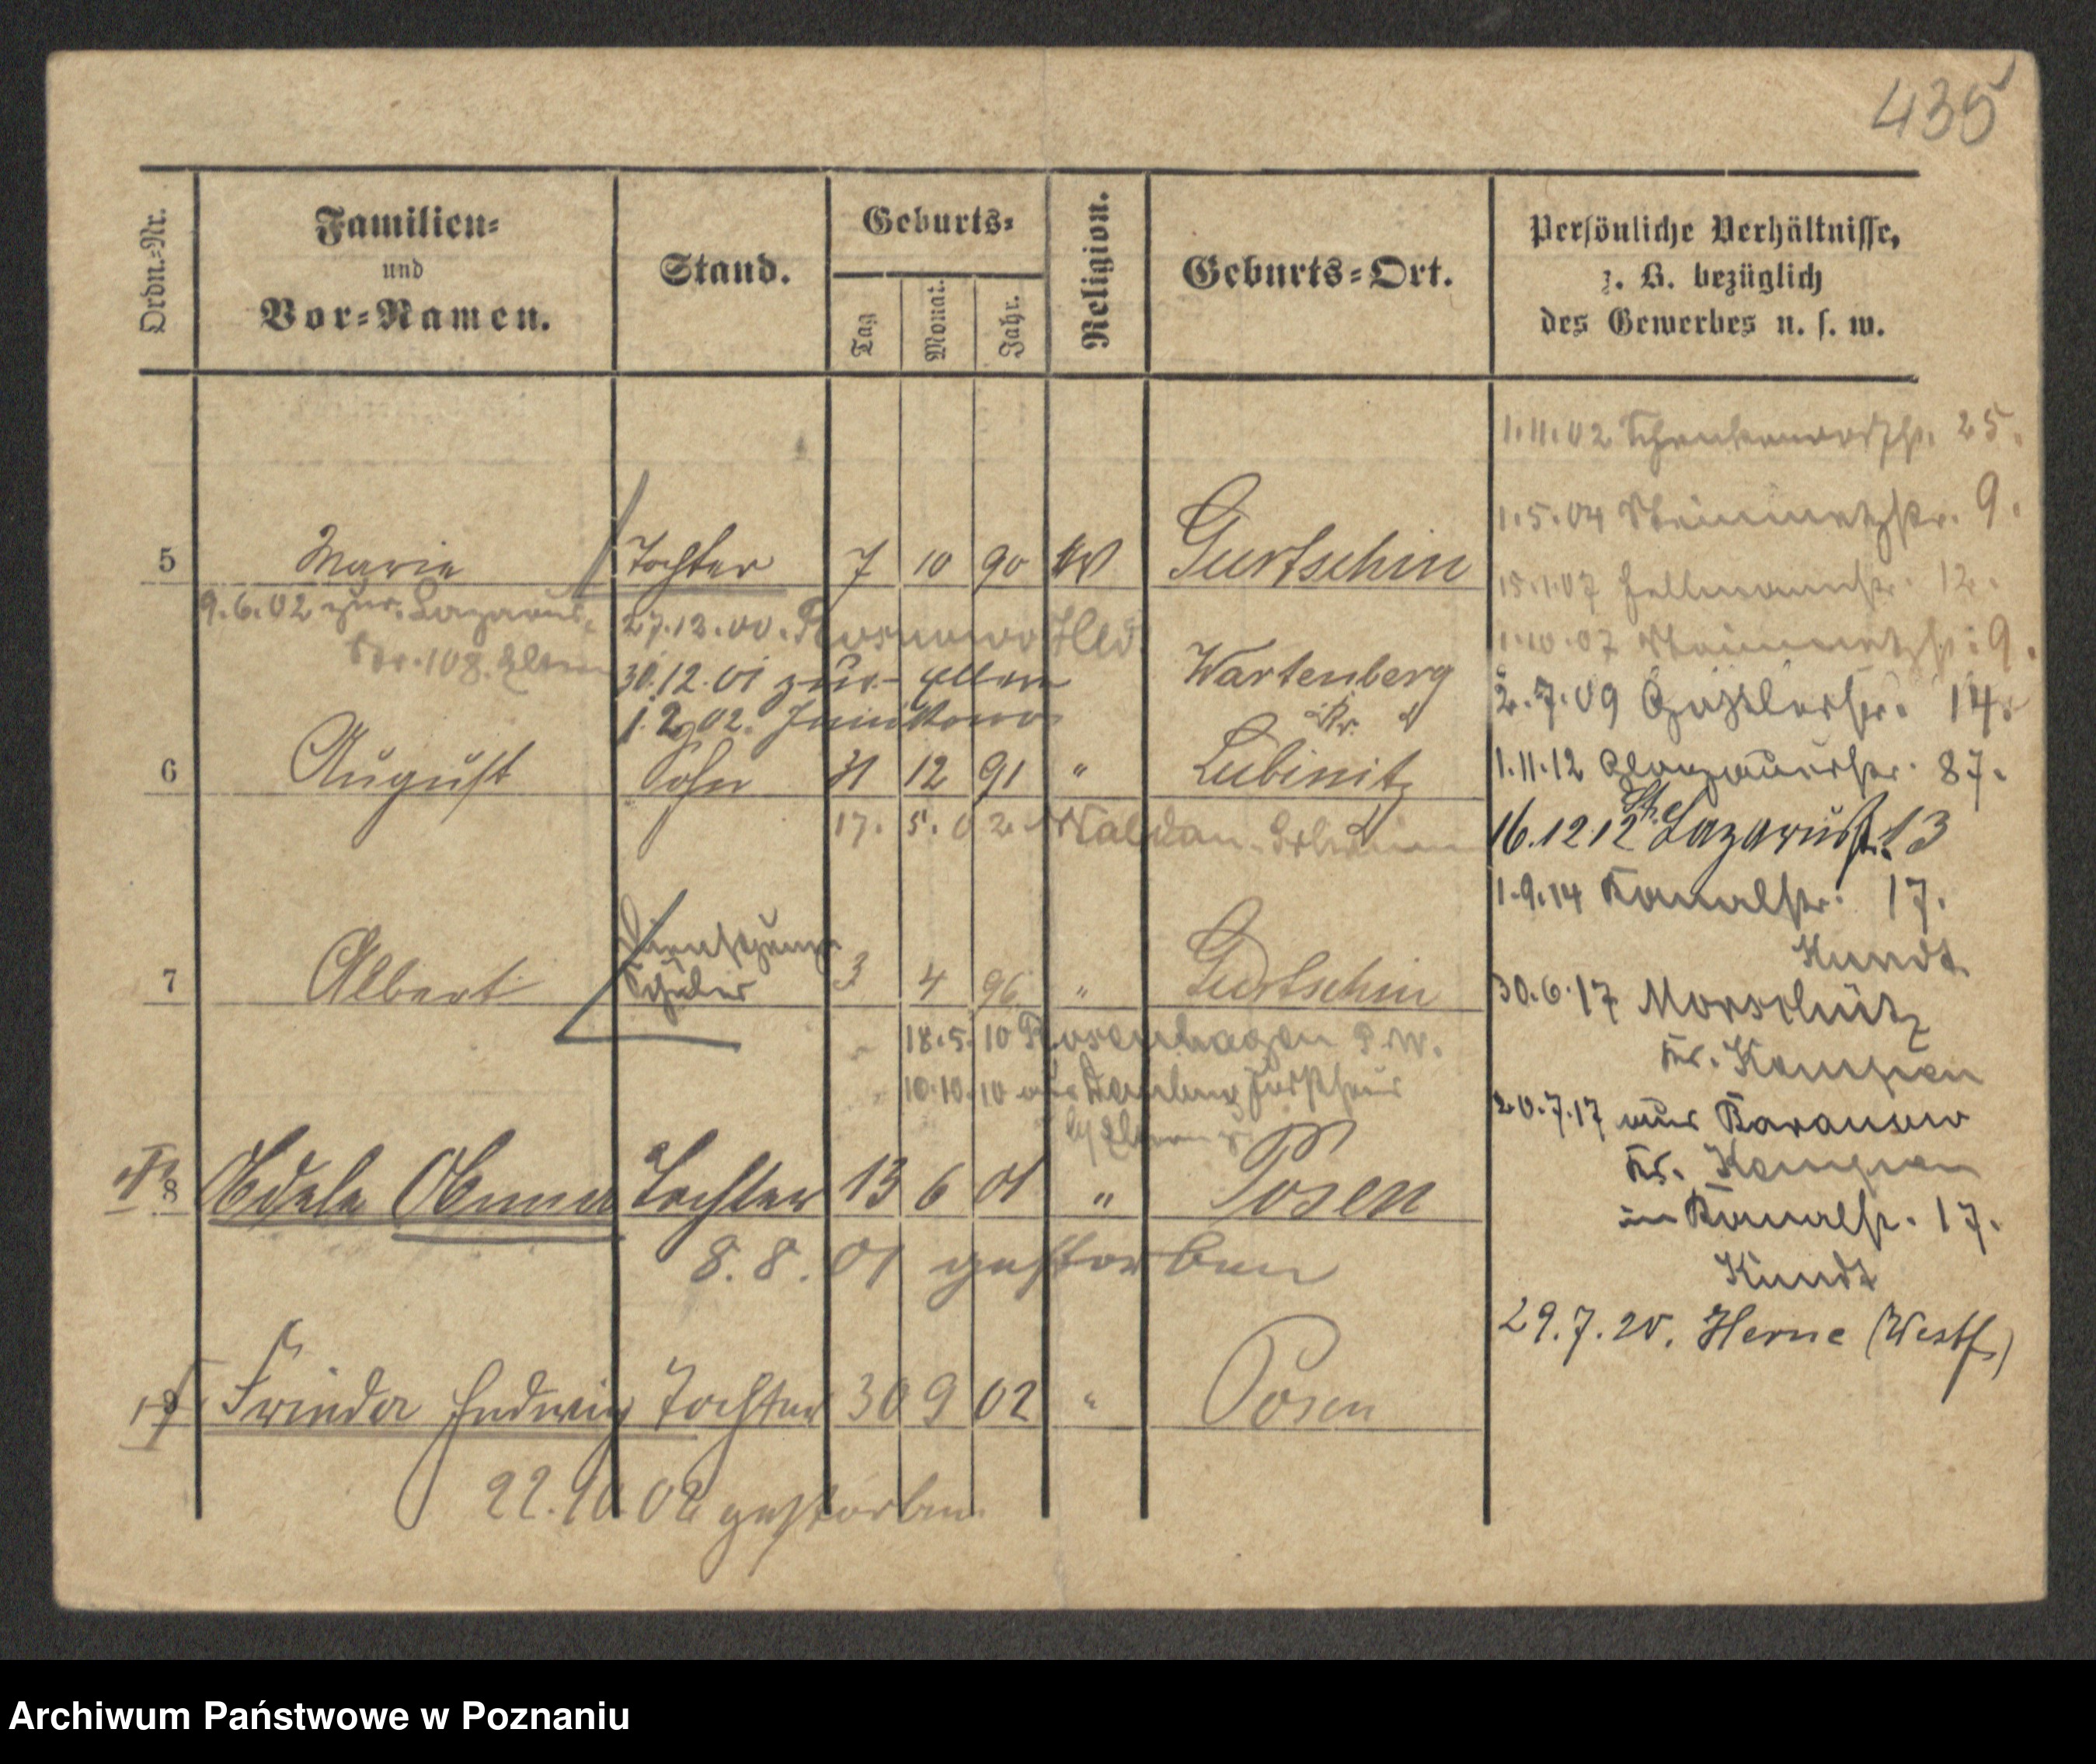 435
Ordn.-Nr.
Familien-
und
Vor-Namen.
Stand.
Geburts-
Tag
Monat.
Jahr.
Religion.
Geburts-Ort.
Persönliche Verhältnisse,
z. B. bezüglich
des Gewerbes u. s. w.
1.11.02 25.
1.5.04 Steinmetzstr. 9.
5 Marie Tochter 7 10 90 Gurtschin
15.1.07 Hellmannstr. 12.
9.6.02 zur. Lazarus-
27.12.00.
1.10.07 Steinmetzstr. 9.
Str. 108. Eltern
30.12.01 zur. Eltern
Wartenberg
2.7.09 14.
1.2.02. Junikowo
Kr.
6 August Sohn 31 12 91 " Lubinitz
1.11.12 Glogauerstr. 87.
17. 5. 02 Waldau
16.12 12 St. Lazarusstr. 13
1.9.14 Kanalstr. 17.
Kundt
7 Albert Dienstjunge
Schüler 3 4 96 " Gurtschin
30.6.17 Morschütz
Kr. Kempen
18.5.10 Rosenhagen P. W.
10.10.10 Forsthaus
20.7.17 aus Baranow
Kr. Kempen
8 Adele Anna Tochter 13 6 01 " Posen
in Kanalstr. 17.
8. 8. 01 gestorben
Kundt
29.7.20. Herne (Westf.)
9 Frieda Hedwig Tochter 30 9 02 " Posen
22.10 02 gestorben.
Archiwum Państwowe w Poznaniu